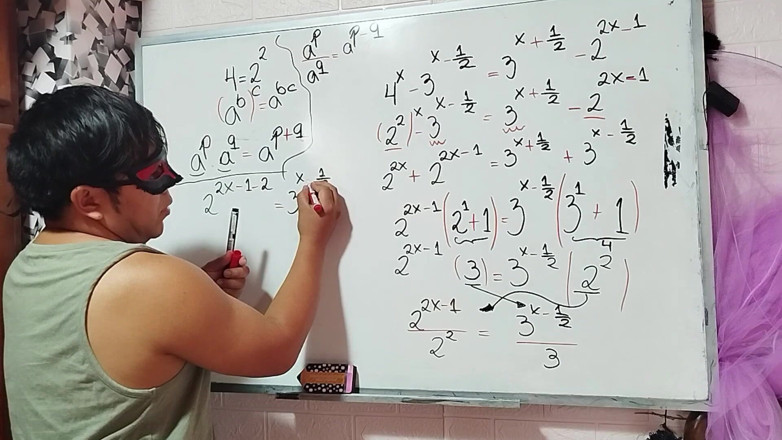 4 = 2²
(a^b)^c = a^bc
a^p a^q = a^p+q
a^p/a^q = a^p-q
2^2x-1-2 = 3^x 1
4^x - 3^x-1/2 = 3^x+1/2 - 2^2x-1
(2²)^x - 3^x-1/2 = 3^x+1/2 - 2^2x-1
2^2x + 2^2x-1 = 3^x+1/2 + 3^x-1/2
2^2x-1 (2^1 + 1) = 3^x-1/2 (3^1 + 1)
4
2^2x-1 (3) = 3^x-1/2 (2²)
2^2x-1/2² = 3^x-1/2/3